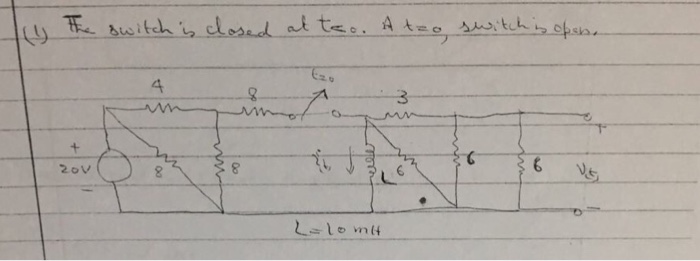 (1) The switch is closed at t≤0. A t=0, switch is open.
t=0
4 8 3
+ 20V - 8 8 iL L 6 6 6 + V(t) -
L=10mH